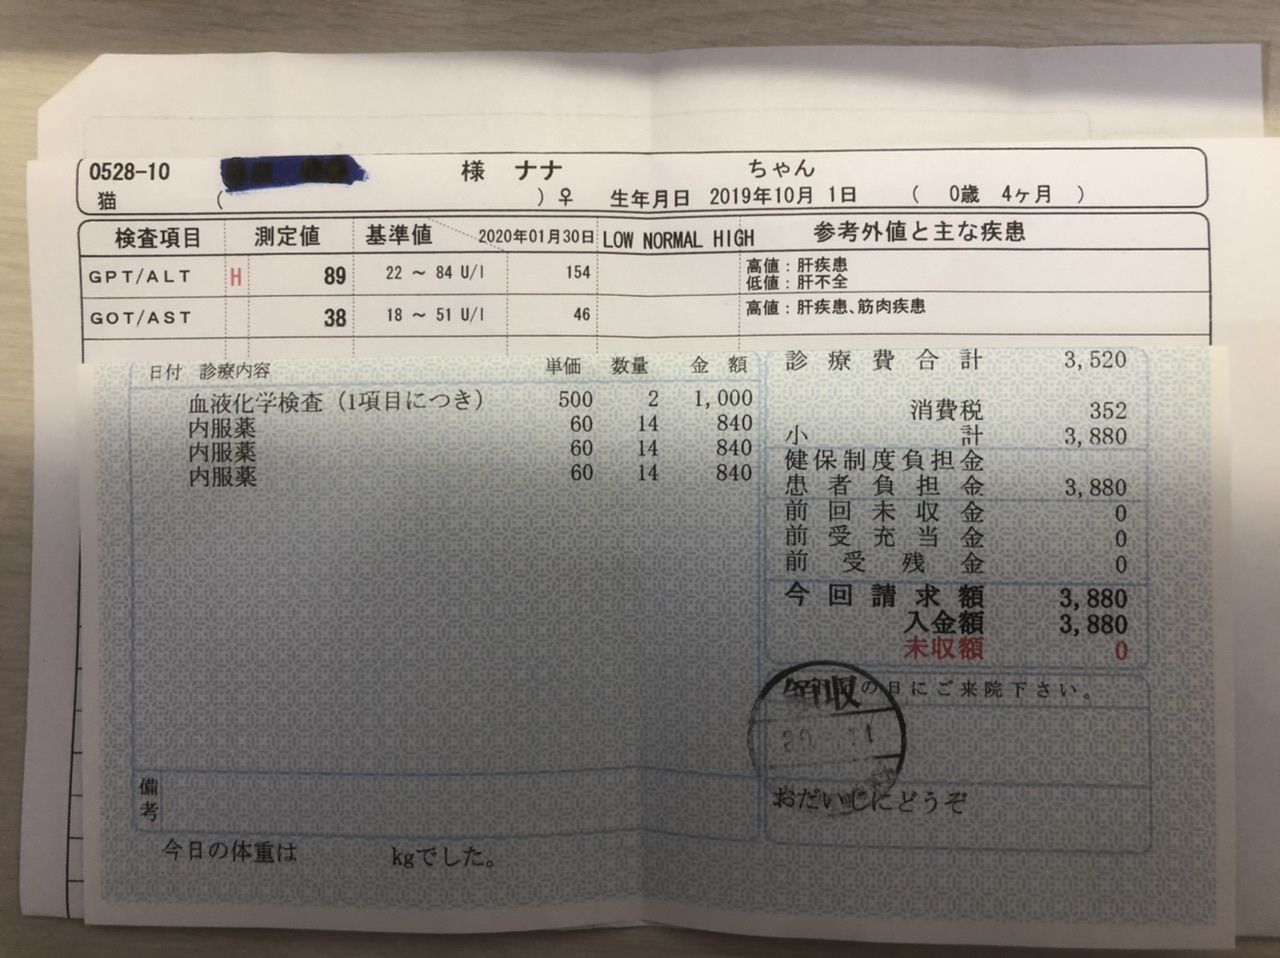 0528-10 様 ナナ ちゃん
猫 ( ) ♀ 生年月日 2019年10月 1日 ( 0歳 4ヶ月 )
検査項目 測定値 基準値 2020年01月30日 LOW NORMAL HIGH 参考外値と主な疾患
GPT/ALT H 89 22 ～ 84 U/l 154 高値：肝疾患
低値：肝不全
GOT/AST 38 18 ～ 51 U/l 46 高値：肝疾患、筋肉疾患
日付 診療内容 単価 数量 金額
血液化学検査（1項目につき） 500 2 1,000
内服薬 60 14 840
内服薬 60 14 840
内服薬 60 14 840
備考
今日の体重は kgでした。
診療費合計 3,520
消費税 352
小計 3,880
健保制度負担金
患者負担金 3,880
前回未収金 0
前受充当金 0
前受残金 0
今回請求額 3,880
入金額 3,880
未収額 0
の日にご来院下さい。
領収
おだいじにどうぞ